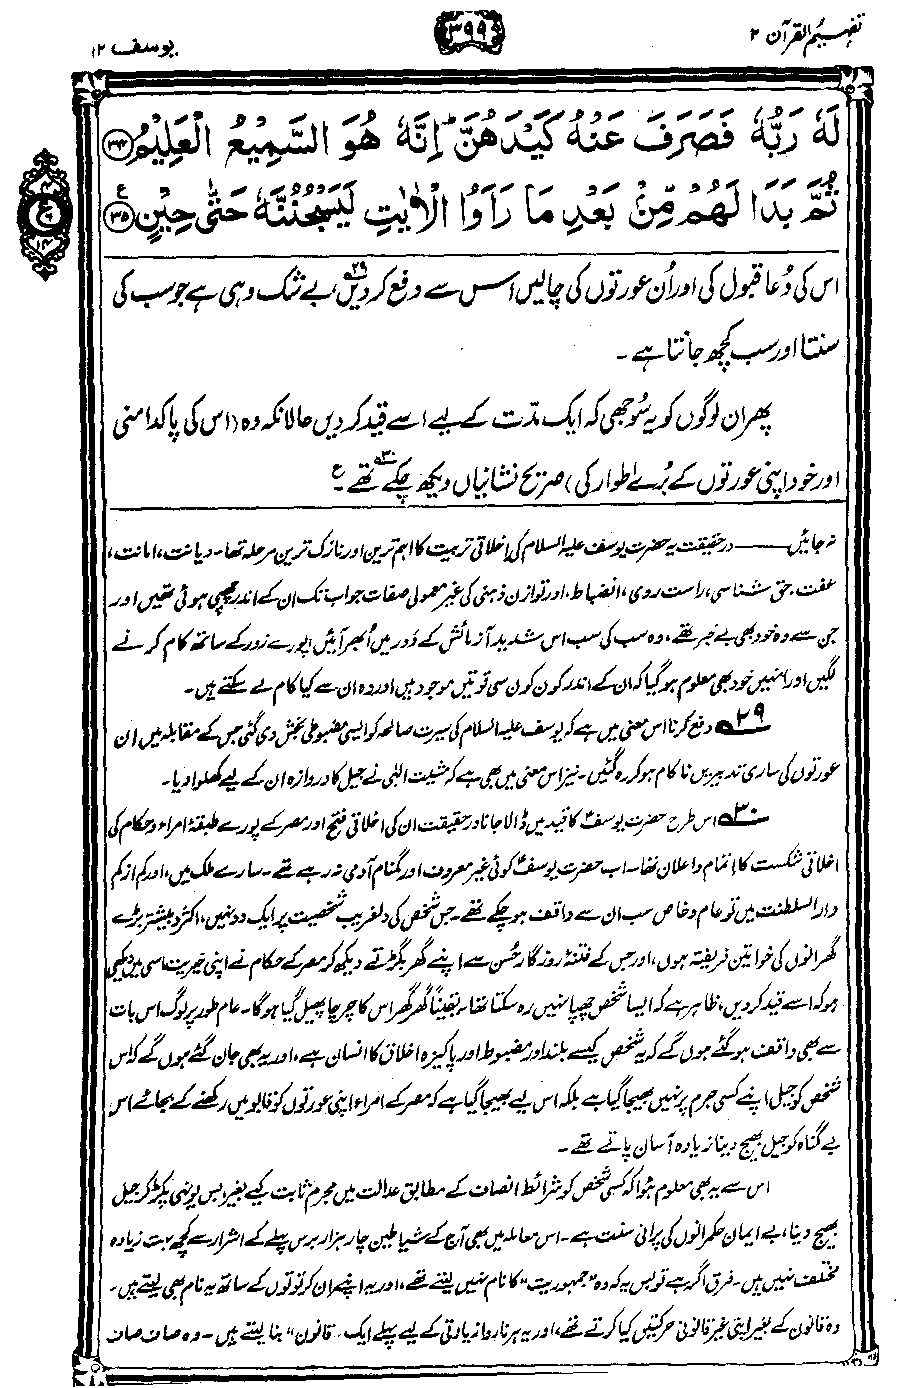 تفہیم القرآن ۲
۳۹۹
یوسف ۱۲
لَهٗ رَبُّهٗ فَصَرَفَ عَنْهُ كَیْدَهُنَّ ؕ اِنَّهٗ هُوَ السَّمِیْعُ الْعَلِیْمُ ﴿۳۴﴾
ثُمَّ بَدَا لَهُمْ مِّنْۢ بَعْدِ مَا رَاَوُا الْاٰیٰتِ لَیَسْجُنُنَّهٗ حَتّٰى حِیْنٍ ﴿۳۵﴾ ع
اس کی دُعا قبول کی اور اُن عورتوں کی چالیں اس سے دفع کر دیں۲۹، بے شک وہی ہے جو سب کی
سنتا اور سب کچھ جانتا ہے۔
پھر ان لوگوں کو یہ سُوجھی کہ ایک مدّت کے لیے اسے قید کر دیں حالانکہ وہ (اس کی پاکدامنی
اور خود اپنی عورتوں کے بُرے اطوار کی) صریح نشانیاں دیکھ چکے تھے۳۰۔ ع
نہ جائیں ــــــ درحقیقت یہ حضرت یوسف علیہ السلام کی اخلاقی تربیت کا اہم ترین اور نازک ترین مرحلہ تھا۔ دیانت، امانت،
عفت، حق شناسی، راست روی، انضباط، اور توازن ذہنی کی غیر معمولی صفات جو اب تک ان کے اندر چھپی ہوئی تھیں اور
جن سے وہ خود بھی بے خبر تھے، وہ سب کی سب اس شدید آزمائش کے دَور میں اُبھر آئیں، پورے زور کے ساتھ کام کرنے
لگیں اور انہیں خود بھی معلوم ہو گیا کہ ان کے اندر کون کون سی قوتیں موجود ہیں اور وہ ان سے کیا کام لے سکتے ہیں۔
۲۹ دفع کرنا اس معنی میں ہے کہ یوسف علیہ السلام کی سیرت صالحہ کو ایسی مضبوطی بخش دی گئی جس کے مقابلہ میں ان
عورتوں کی ساری تدبیریں ناکام ہو کر رہ گئیں۔ نیز اس معنی میں بھی ہے کہ مشیت الٰہی نے جیل کا دروازہ ان کے لیے کھلوا دیا۔
۳۰ اس طرح حضرت یوسفؑ کا قید میں ڈالا جانا درحقیقت ان کی اخلاقی فتح اور مصر کے پورے طبقۂ امراء و حکام کی
اخلاقی شکست کا اتمام و اعلان تھا۔ اب حضرت یوسفؑ کوئی غیر معروف اور گمنام آدمی نہ رہے تھے۔ سارے ملک میں، اور کم از کم
دارالسلطنت میں تو عام و خاص سب ان سے واقف ہو چکے تھے۔ جس شخص کی دلفریب شخصیت پر ایک دو نہیں، اکثر و بیشتر بڑے
گھرانوں کی خواتین فریفتہ ہوں، اور جس کے فتنۂ روزگار حُسن سے اپنے گھر بگڑتے دیکھ کر مصر کے حکام نے اپنی خیریت اسی میں دیکھی
ہو کہ اسے قید کر دیں، ظاہر ہے کہ ایسا شخص چھپا نہیں رہ سکتا تھا۔ یقیناً گھر گھر اس کا چرچا پھیل گیا ہوگا۔ عام طور پر لوگ اس بات
سے بھی واقف ہو گئے ہوں گے کہ یہ شخص کیسے بلند اور مضبوط اور پاکیزہ اخلاق کا انسان ہے، اور یہ بھی جان گئے ہوں گے کہ اس
شخص کو جیل اپنے کسی جرم پر نہیں بھیجا گیا ہے بلکہ اس لیے بھیجا گیا ہے کہ مصر کے امراء اپنی عورتوں کو قابو میں رکھنے کے بجائے اس
بے گناہ کو جیل بھیج دینا زیادہ آسان پاتے تھے۔
اس سے یہ بھی معلوم ہوا کہ کسی شخص کو شرائط انصاف کے مطابق عدالت میں مجرم ثابت کیے بغیر، بس یونہی پکڑ کر جیل
بھیج دینا، بے ایمان حکمرانوں کی پرانی سنت ہے۔ اس معاملہ میں بھی آج کے شیاطین چار ہزار برس پہلے کے اشرار سے کچھ بہت زیادہ
مختلف نہیں ہیں۔ فرق اگر ہے تو بس یہ کہ وہ "جمہوریت" کا نام نہیں لیتے تھے، اور یہ اپنے ان کرتوتوں کے ساتھ یہ نام بھی لیتے ہیں۔
وہ قانون کے بغیر اپنی غیر قانونی حرکتیں کیا کرتے تھے، اور یہ ہر ناروا زیادتی کے لیے پہلے ایک "قانون" بنا لیتے ہیں۔ وہ صاف صاف